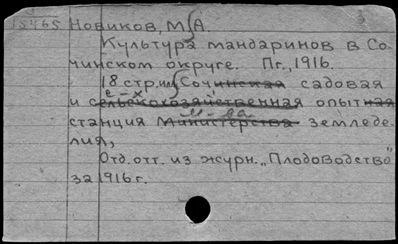 15465 Новиков, М.А.
Культура мандаринов в Со-
чинском округе. Пг., 1916.
18 стр. илл. Сочинская садовая
и сельскохозяйственная опытная
станция Министерства земледе-
лия,
Отд. отт. из журн. „Плодоводство"
за 1916 г.